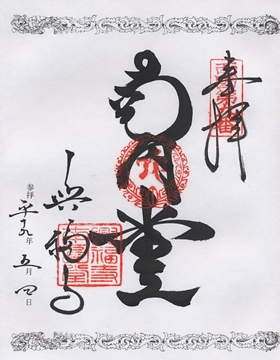 奉拝
南円堂
興福寺
参拝 平 年 五月四日